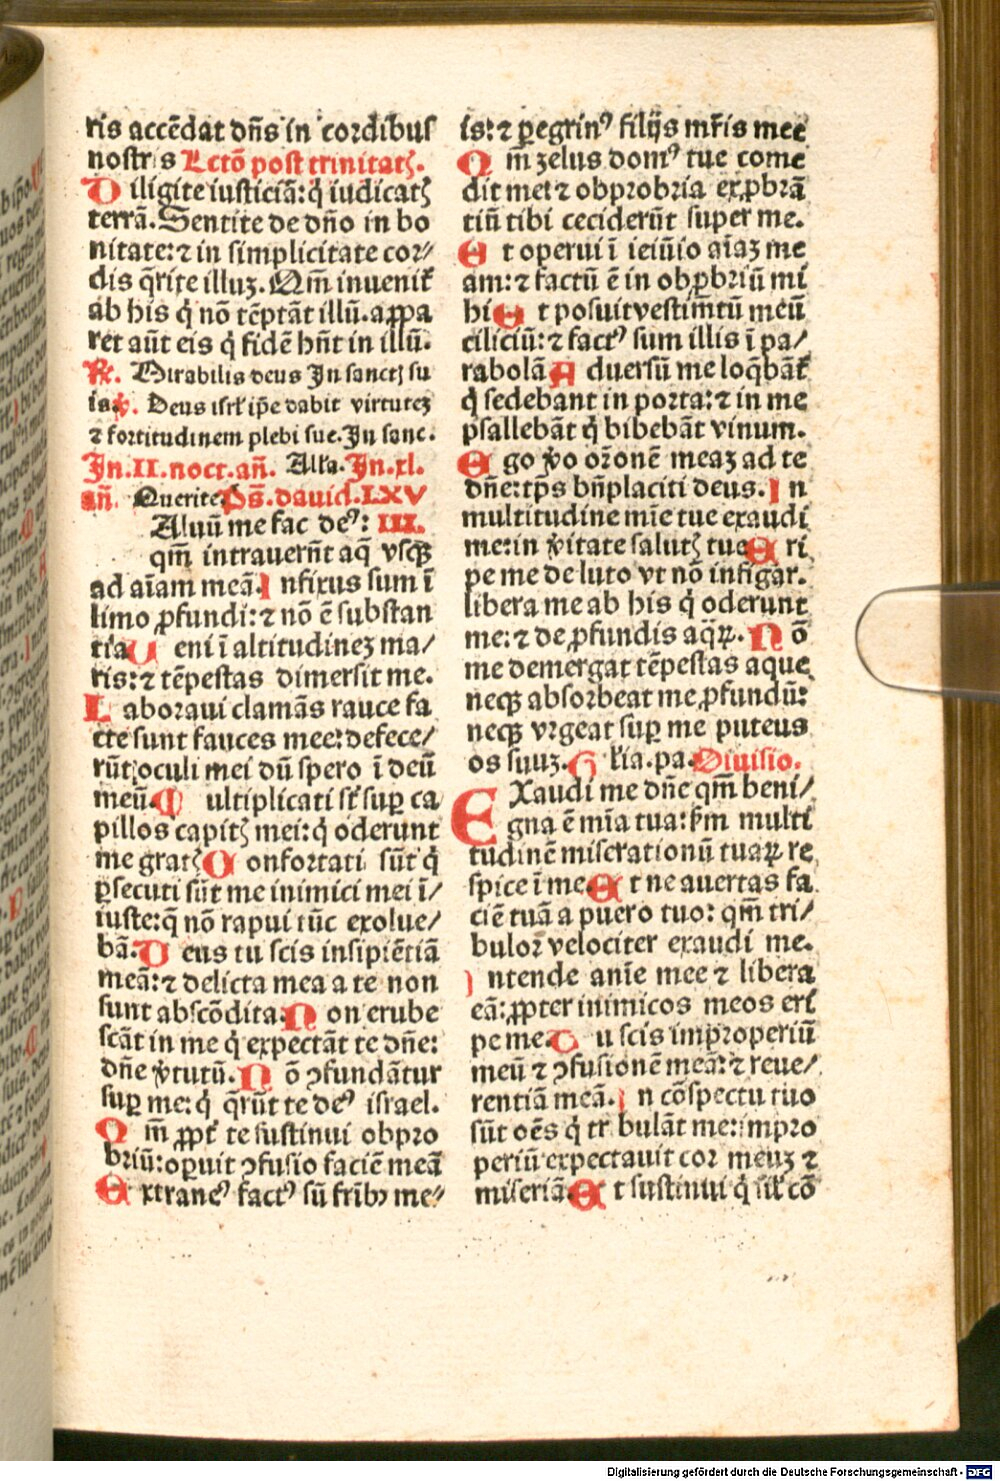 ris accēdat dn̄s in cordibus
nostr s Lctō post trinitatꝭ.
D iligite iusticiā: q̇ iudicatꝭ
terrā. Sentite de dn̄o in bo
nitate: ⁊ in simplicitate cor⸗
dis q̄rite illuꝫ. Qm̄ inuenit̄
ab his q̇ nō tēptāt illū. appa
ret aūt eis q̇ fidē hn̄t in illū.
℟. Mirabilis deus In sanctꝭ su
is. ℣. Deus isrl̄ ip̄e dabit virtuteꝫ
⁊ fortitudinem plebi sue. In sanc.
In. II. noct. an̄. Alla. In. xl.
an̄. Querite. Ps̄. dauid. LXV
Aluū me fac deꝰ: III.
qm̄ intrauerūt aq̄ vsqꝫ
ad aīam meā. I nfixus sum ī
limo ꝓfundi: ⁊ nō ē substan
tia U eni ī altitudineꝫ ma/
ris: ⁊ tēpestas dimersit me.
L aboraui clamās rauce fa
cte sunt fauces mee: defece/
rūt oculi mei dū spero ī deū
meū. M ultiplicati st̄ suꝑ ca
pillos capitꝭ mei: q̇ oderunt
me gratꝭ C onfortati sūt q̇
ꝑsecuti sūt me inimici mei ī/
iuste: q̄ nō rapui tūc exolue/
bā. D eus tu scis insipiētiā
meā: ⁊ delicta mea a te non
sunt abscōdita. N on erube
scāt in me q̇ expectāt te dn̄e:
dn̄e v̇tutū. N ō ꝯfundātur
suꝑ me: q̇ q̄rūt te deꝰ israel.
Q m̄ ꝓpt̄ te sustinui obpro
briū: oꝑuit ꝯfusio faciē meā
E xtraneꝰ factꝰ sū fr̄ibꝫ me⸗
is: ⁊ ꝑegrinꝰ filijs mr̄is mee
Q m̄ zelus domꝰ tue come
dit me: ⁊ obprobria exꝓbrā
tiū tibi ceciderūt super me.
E t operui ī ieiūio aīaꝫ me
am: ⁊ factū ē in obꝓbriū mi
hi E t posui vestim̄tū meū
ciliciū: ⁊ factꝰ sum illis ī pa/
rabolā A duersū me loq̄bāt̄
q̇ sedebant in porta: ⁊ in me
psallebāt q̇ bibebāt vinum.
E go v̇o or̄onē meaꝫ ad te
dn̄e: tp̄s bn̄placiti deus. I n
multitudine mīe tue exaudi
me: in v̇itate salutꝭ tue E ri
pe me de luto vt nō infigar.
libera me ab his q̇ oderunt
me: ⁊ de ꝓfundis aq̄ꝝ. N ō
me demergat tēpestas aque
neqꝫ absorbeat me ꝓfundū:
neqꝫ vrgeat suꝑ me puteus
os suuꝫ. G l̄ia. pa. Diuisio.
EXaudi me dn̄e qm̄ beni/
gna ē mīa tua: ẜm multi
tudinē miserationū tuaꝝ re
spice ī me. E t ne auertas fa
ciē tuā a puero tuo: qm̄ tri/
bulor velociter exaudi me.
I ntende anīe mee ⁊ libera
eā: ꝓpter inimicos meos eri
pe me. T u scis improperiū
meū ⁊ ꝯfusionē meā: ⁊ reue/
rentiā meā. I n cōspectu tuo
sūt oēs q̇ tribulāt me: impro
periū expectauit cor meuꝫ ⁊
miseriā. E t sustinui q̇ sil̄ cō
Digitalisierung gefördert durch die Deutsche Forschungsgemeinschaft - DFG